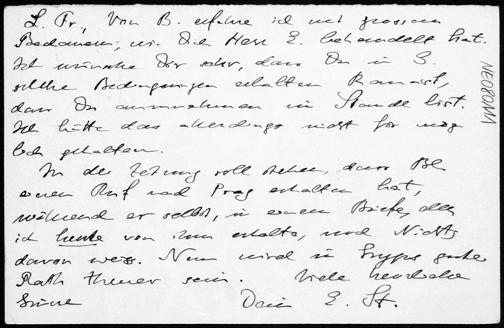 L. Fr., Von B. erfahre ich mit grossem
Bedauern, wie Dich Herr E. behandelt hat.
Ich wünsche Dir sehr, dass Du in
solche Bedingungen erhalten kannst,
dass Du anzunehmen im Stande bist.
Ich hätte das allerdings nicht für mög
lich gehalten.
In der Zeitung soll stehen, dass Bl
einen Ruf nach Prag erhalten hat,
während er selbst, in einem Briefe, den
ich heute von ihm erhalte, noch Nichts
davon weiss. Nun wird in guter
Rath theuer sein. Viele herzliche
Grüsse Dein E. St.